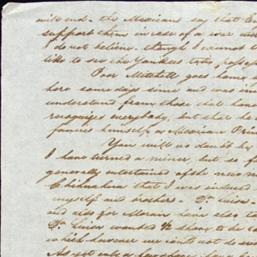 will end. the Mexicans say that
support them in case of a war with
do not believe. though I cannot
like to see the Yankees take
Poor Mitchell goes home
here some days since and was
understand from those that have
recognizes everybody, but that he
fancies himself a Mexican
You will no doubt be
I have turned a miner, but so
generally entertained of the new
Chihuahua that I was induced
myself and brothers.
and also for
wanted ½ share to be
which however we could not do
As yet only a